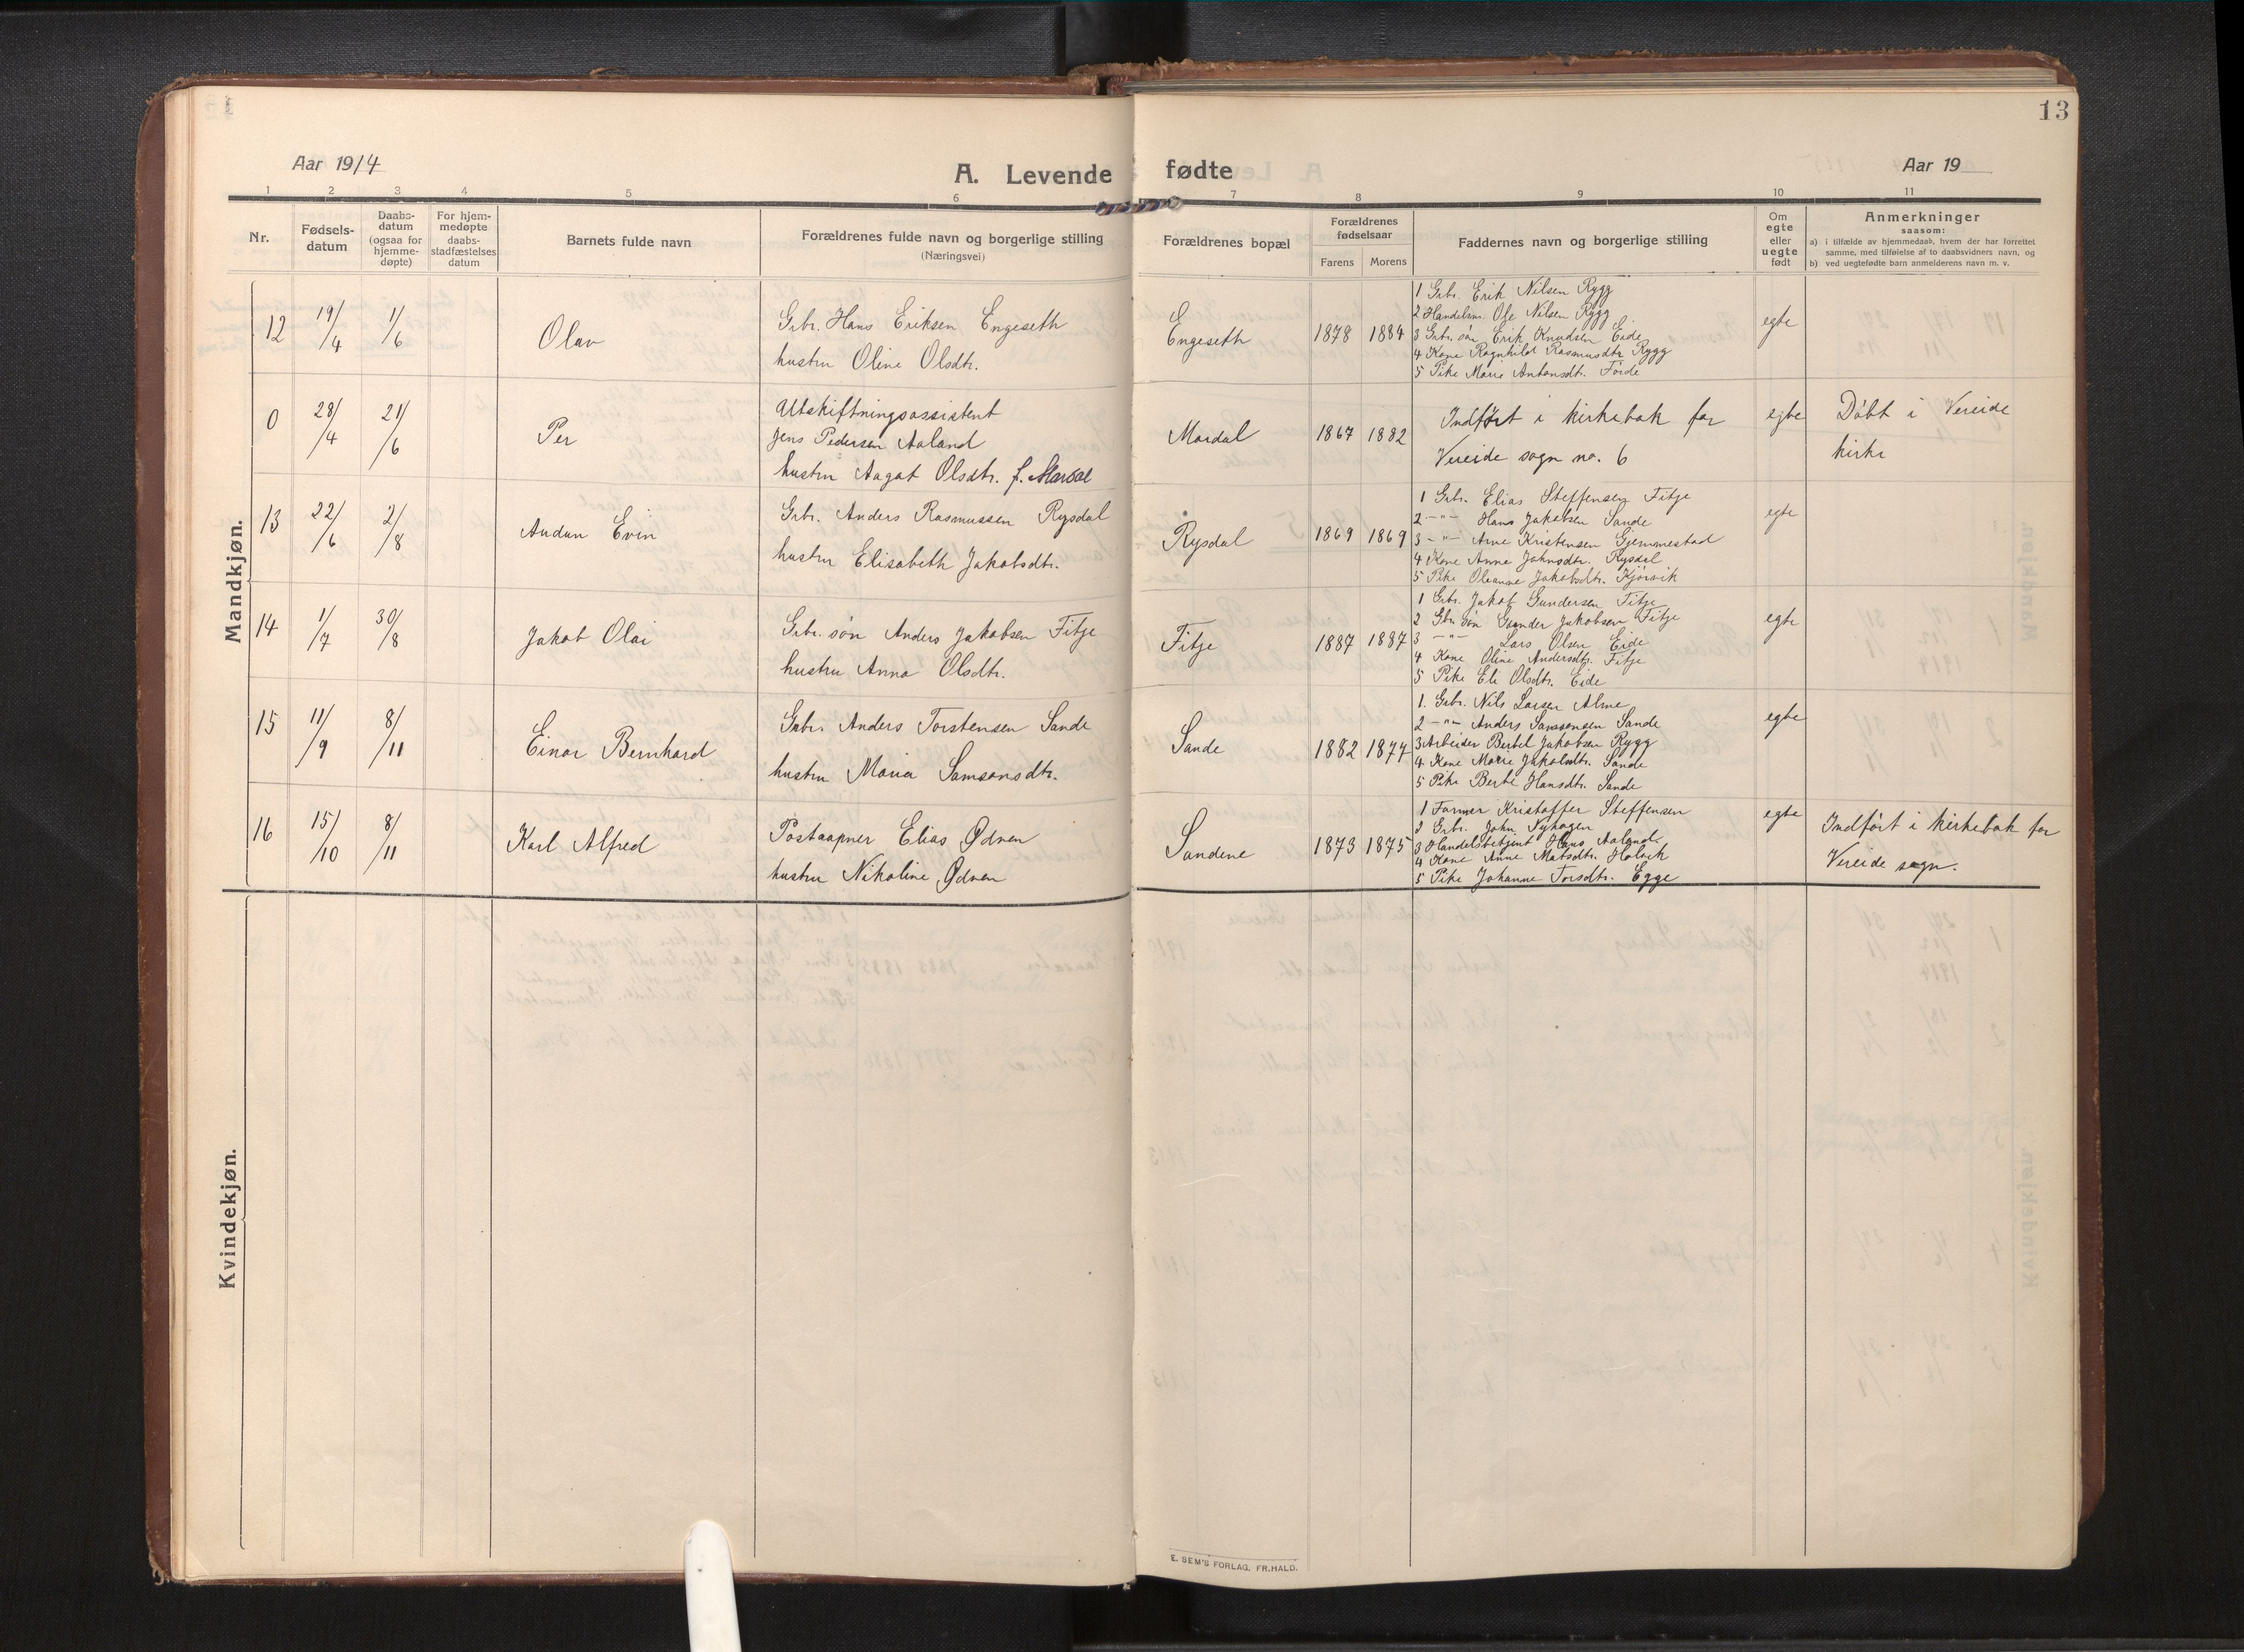 13
Aar 1914
A. Levende fødte
Aar 19
1 2 3 4 5 6 7 8 9 10 11
Nr.
Fødsels-
datum
Daabs-
datum
(ogsaa for
hjemme-
døpte)
For hjem-
medøpte
daabs-
stadfæstelses
datum
Barnets fulde navn
Forældrenes fulde navn og borgerlige stilling
(Næringsvei)
Forældrenes bopæl
Forældrenes
fødselsaar
Farens Morens
Faddernes navn og borgerlige stilling
Om
egte
eller
uegte
født
Anmerkninger
saasom:
a) i tilfælde av hjemmedaab, hvem der har forrettet
samme, med tilføielse af to daabsvidners navn, og
b) ved uegtefødte barn anmelderens navn m. v.
Mandkjøn.
12 19/4 1/6 Olav
Grbr. Hans Eriksen Engeseth
hustru Oline Olsdtr.
Engeseth 1878 1884
1 Grbr. Erik Nilsen Rygg
2 Handelsm. Ole Nilsen Rygg
3 Grbr. søn Erik Knudsen Eide
4 Kone Ragnhild Rasmusdtr Rygg
5 Pike Marie Antonsdtr. Förde
egte
0 28/4 21/6 Per
Utskiftningsassistent
Jens Pedersen Aaland
hustru Aagot Olsdtr. f. Mardal
Mardal 1867 1882
Indført i kirkebok for
Vereide sogn no. 6
egte
Döbt i Vereide
kirke
13 22/6 2/8 Audun Evin
Grbr. Anders Rasmussen Rysdal
hustru Elisabeth Jakobsdtr.
Rysdal 1869 1869
1 Grbr. Elias Steffensen Fitje
2 -"- Hans Jakobsen Sande
3 -"- Arne Kristensen Gjemmestad
4 Kone Anne Johnsdtr. Rysdal
5 Pike Oleanne Jakobsdtr. Kjörvik
egte
14 1/7 30/8 Jakob Olai
Grbr. søn Anders Jakobsen Fitje
hustru Anna Olsdtr.
Fitje 1887 1887
1 Grbr. Jakob Gundersen Fitje
2 Gbr. søn Gunder Jakobsen Fitje
3 -"- Lars Olsen Eide
4 Kone Oline Andersdtr. Fitje
5 Pike Eli Olsdtr. Eide
egte
15 11/9 8/11 Einar Bernhard
Grbr. Anders Torstensen Sande
hustru Maria Samsonsdtr.
Sande 1882 1877
1. Grbr. Nils Larsen Alme
2 -"- Anders Samsonsen Sande
3 Arbeider Bertel Jakobsen Rygg
4 Kone Marie Jakobsdtr. Sande
5 Pike Berte Hansdtr. Sande
egte
16 15/10 8/11 Karl Alfred
Postaapner Elias Ødven
hustru Nikoline Ødven
Sandene 1873 1875
1 Farmer Kristoffer Steffensen
2 Grbr. John Nyhagen
3 Handelsbetjent Hans Aaland
4 Kone Anne Matsdtr. Holvik
5 Pike Johanne Torsdtr. Egge
egte
Indført i kirkebok for
Vereide sogn.
Kvindekjøn.
E. SEM'S FORLAG, FR.HALD.